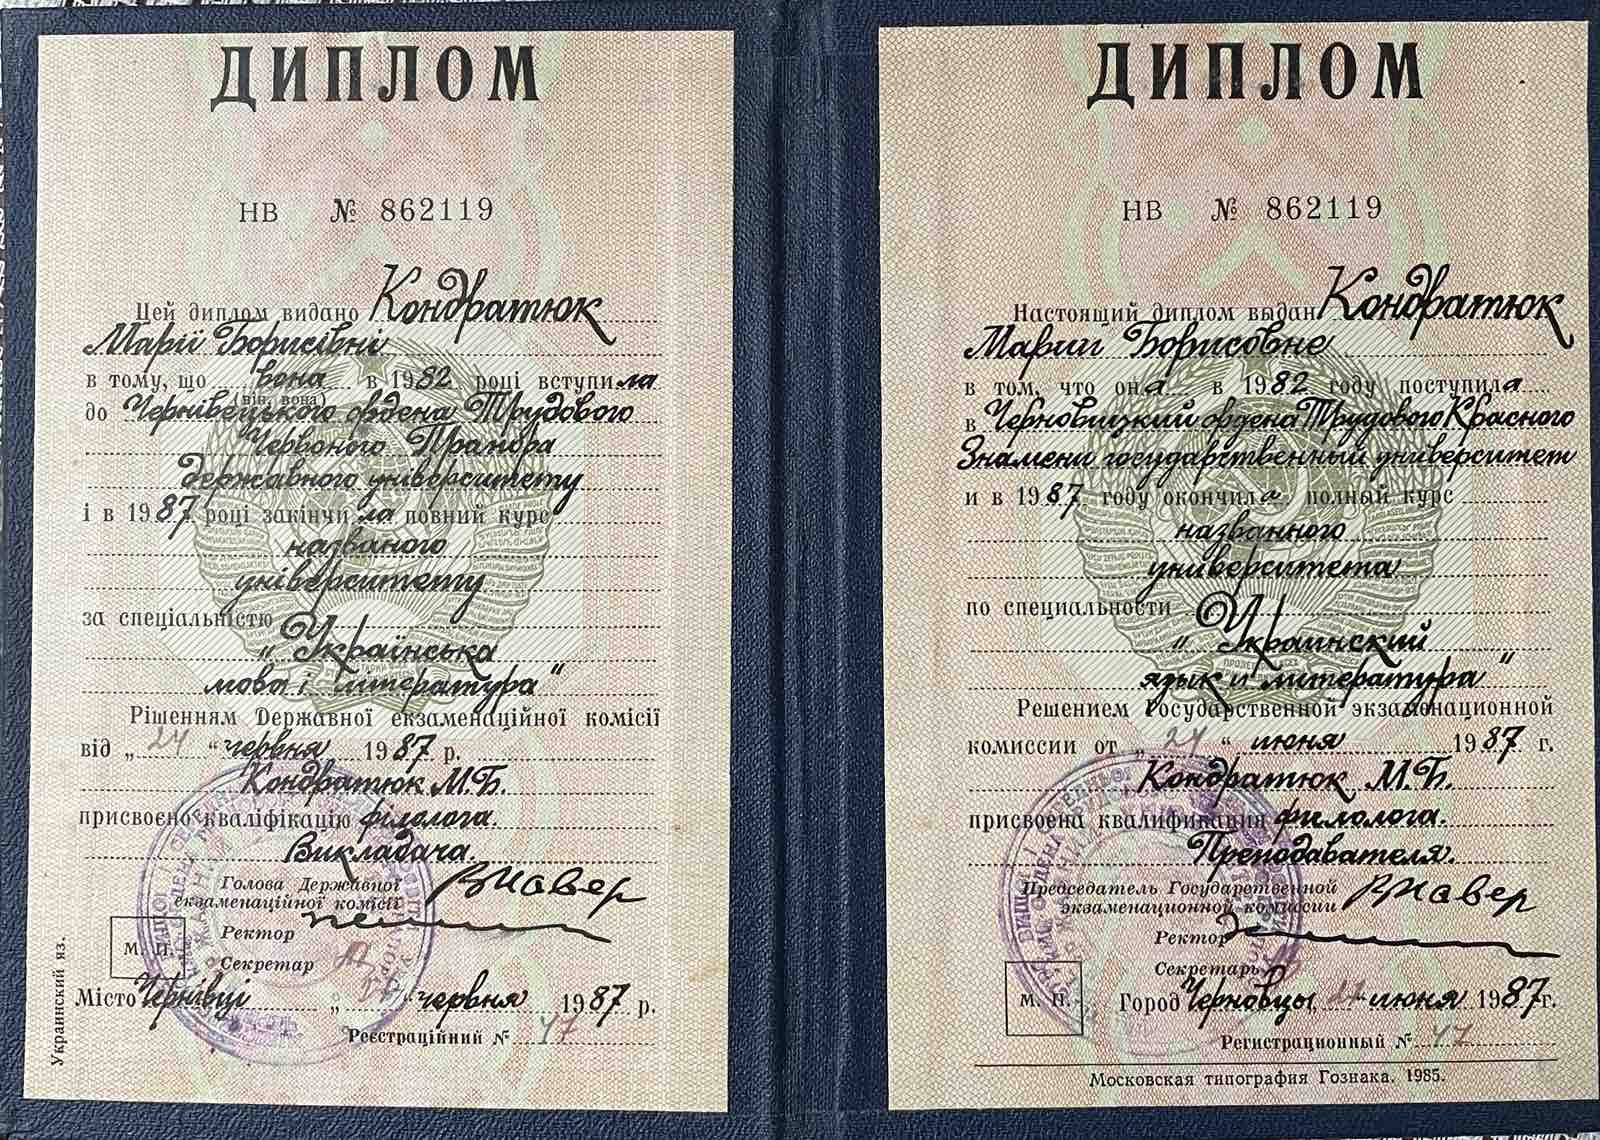 ДИПЛОМ
НВ № 862119
Цей диплом видано Кондратюк
Марії Борисівні
в тому, що вона в 1982 році вступила
(він, вона)
до Чернівецького ордена Трудового
Червоного Прапора
державного університету
і в 1987 році закінчила повний курс
названого
університету
за спеціальністю
„Українська
мова і література“
Рішенням Державної екзаменаційної комісії
від „24“ червня 1987 р.
Кондратюк М.Б.
присвоєно кваліфікацію філолога.
Викладача.
Голова Державної
екзаменаційної комісії
Ректор
Секретар
М. П.
Місто Чернівці „ “ червня 1987 р.
Реєстраційний № 47
Украинский яз.
ДИПЛОМ
НВ № 862119
Настоящий диплом выдан Кондратюк
Марии Борисовне
в том, что она в 1982 году поступила
в Черновицкий ордена Трудового Красного
Знамени государственный университет
и в 1987 году окончила полный курс
названного
университета
по специальности
„Украинский
язык и литература“
Решением Государственной экзаменационной
комиссии от „24“ июня 1987 г.
Кондратюк М.Б.
присвоена квалификация филолога.
Преподавателя.
Председатель Государственной
экзаменационной комиссии
Ректор
Секретарь
М. П.
Город Черновцы, “ июня 1987 г.
Регистрационный № 47
Московская типография Гознака. 1985.